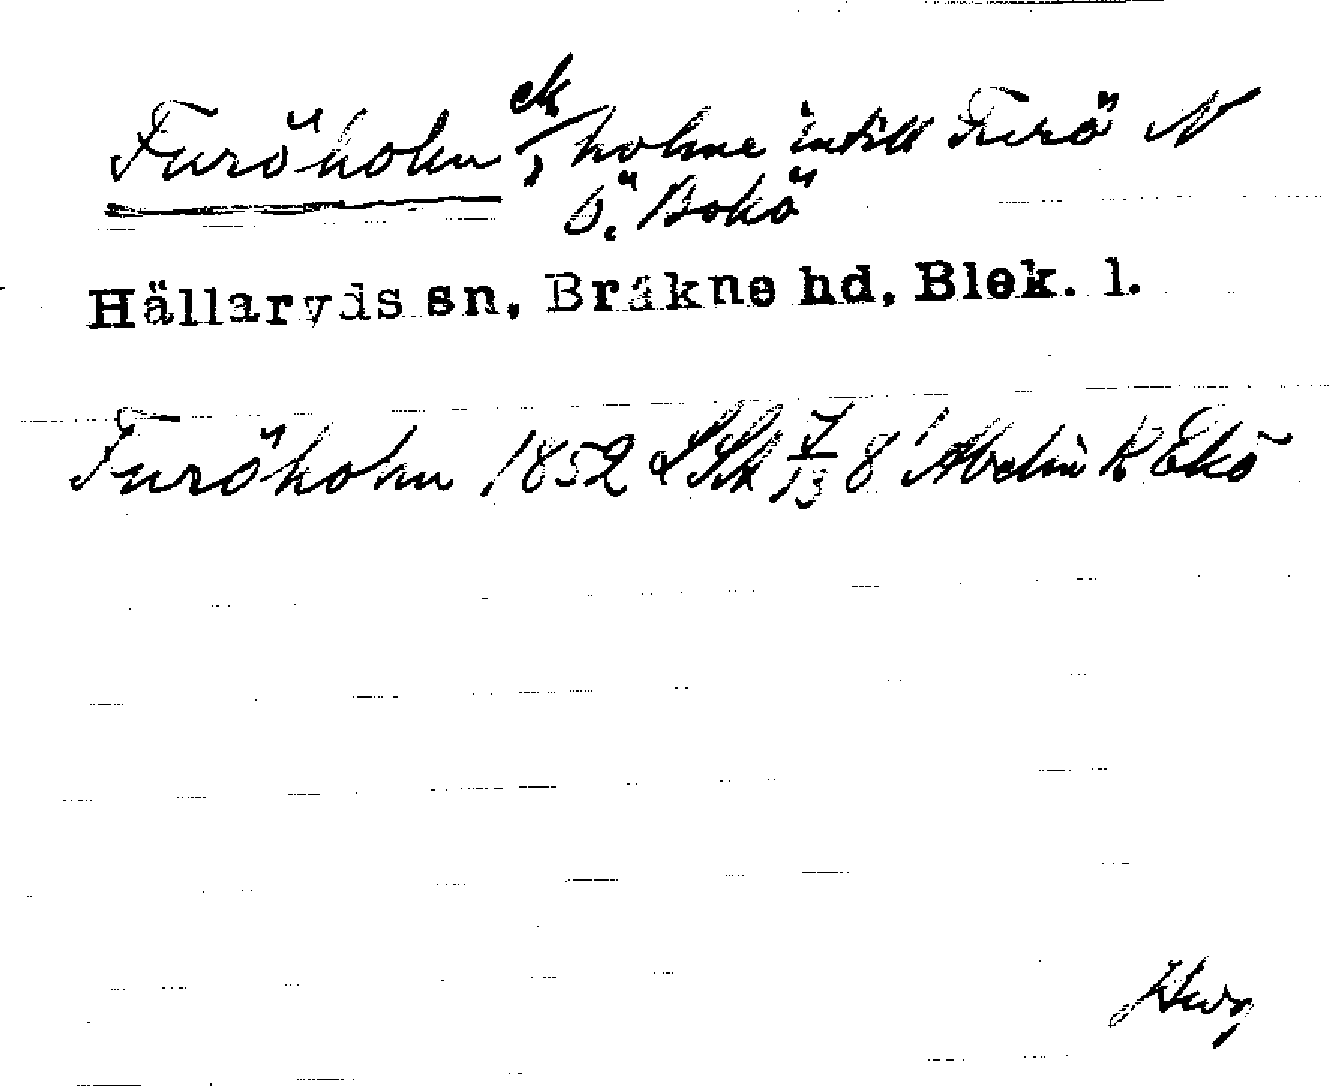 Furöholm, ek holme intill Furö N
Ö. Bokö
Hällaryds sn, Bräkne hd, Blek. l.
Furöholm 1852 LSk 7/13 8' Abelin R Ekö